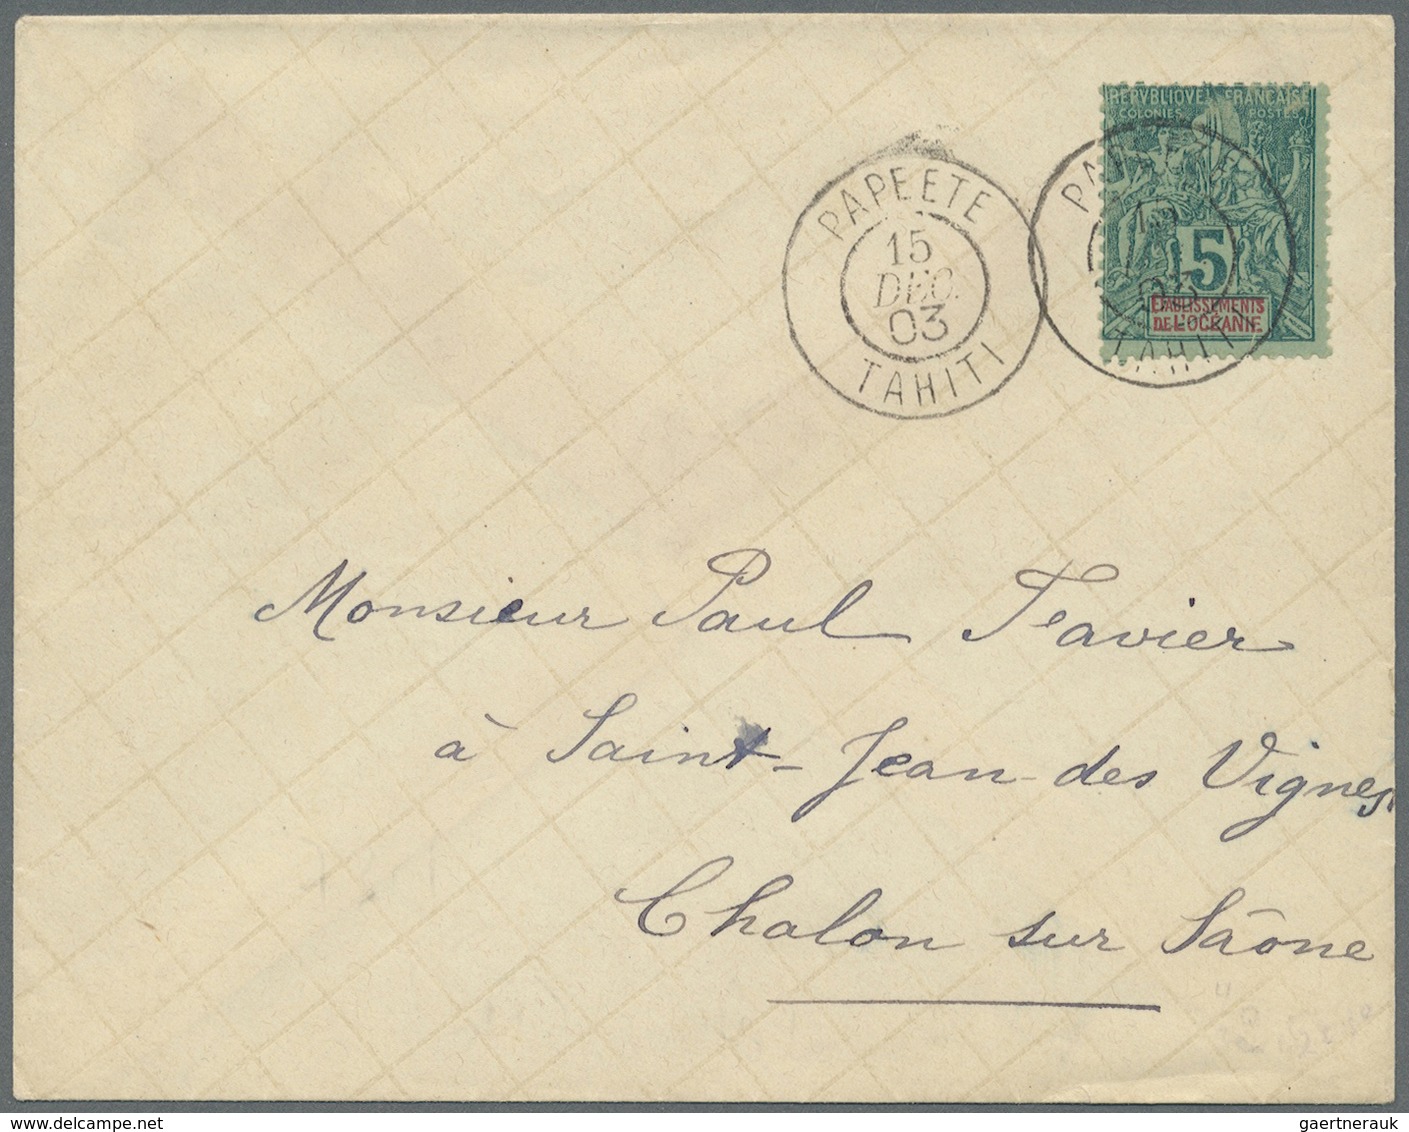 REPVBLIQVE FRANÇAISE
COLONIES POSTES
5
ÉTABLISSEMENTS
DE L'OCÉANIE
PAPEETE
15
DÉC.
03
TAHITI
03
TAHITI
Monsieur Paul Favier
à Saint-Jean-des Vignes
Chalon sur Sâone
gaertnerauk